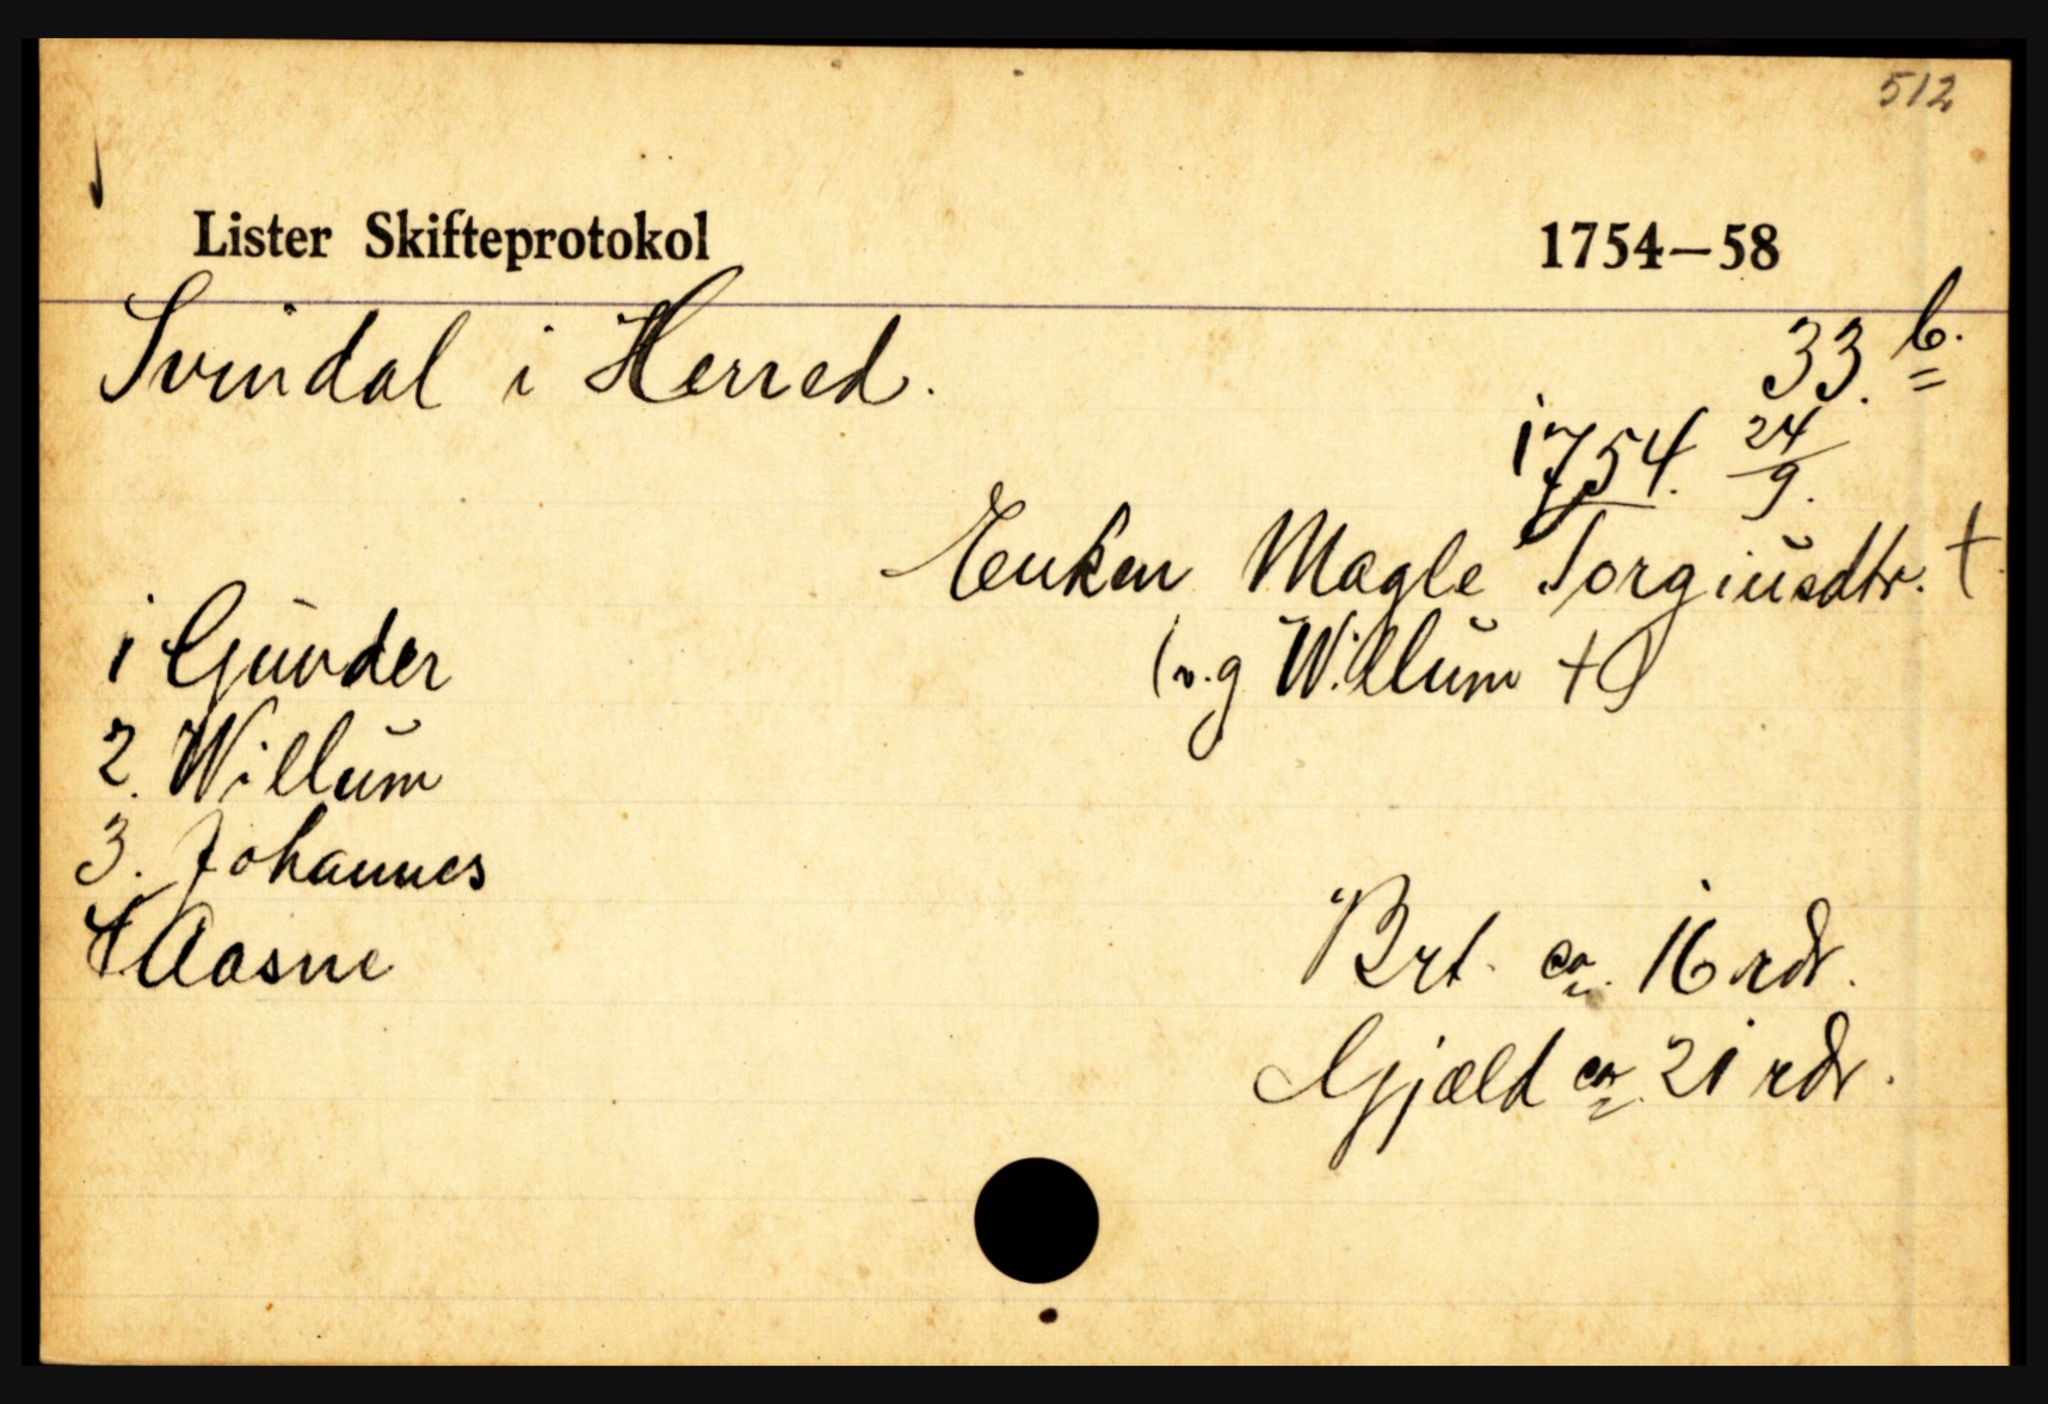 512
Lister Skifteprotokol 1754—58
Svindal i Herred. 33. b.
1754. 24/9.
Enken Magle Torgiusdtr. †.
(v. g Willum †)
1 Gunder
2. Willum
3. Johannes
4. Aasne
Brt. ca. 16 rdr.
Gjæld ca. 21 rdr.